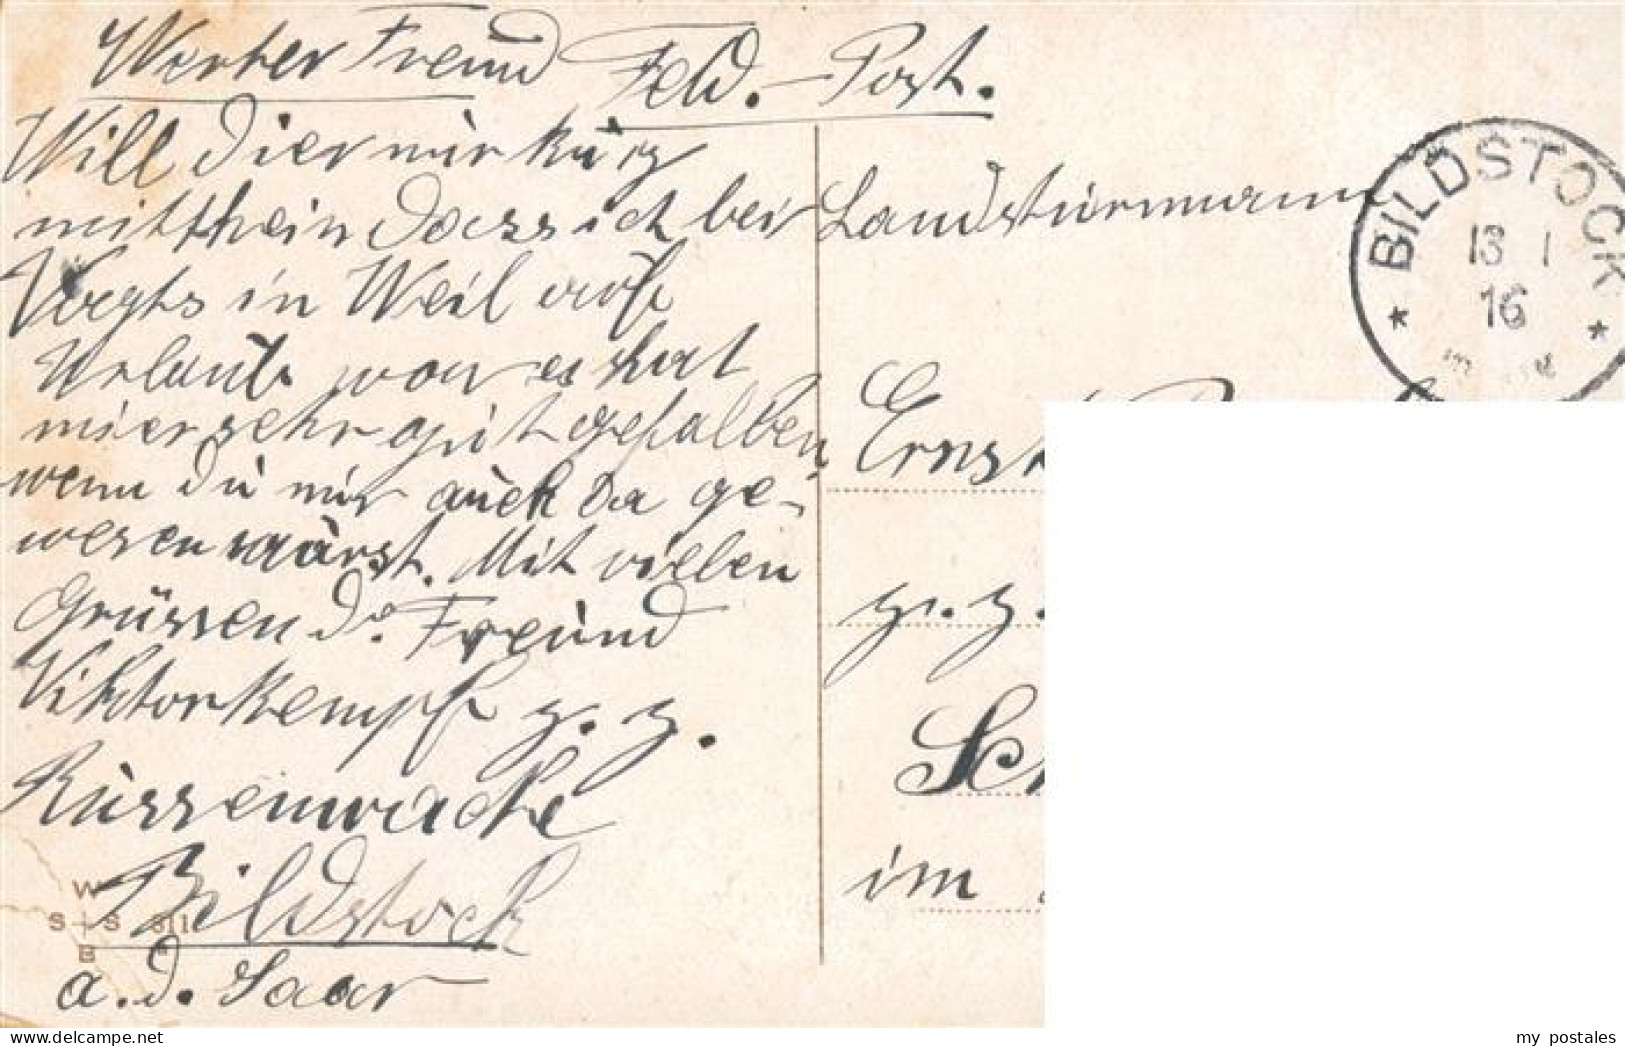 Werter Freund
Feld.-Post.
Will Dier mir kurz
mitthein dass ich bei
Voghts in Weil auf
Urlaub war es hat
mier sehr gut gefallen,
wenn du mir auch da ge-
wesen wärst. Mit viellen
Grüssen D. Freund
Viktor Kempf z. Z.
Russenwache
Bildstock
a. d. Saar
Landsturmmann
Ernst
z. Z.
Sch
im
BILDSTOCK
13 1
16
W
S S 311
B
delcampe.net
my postales